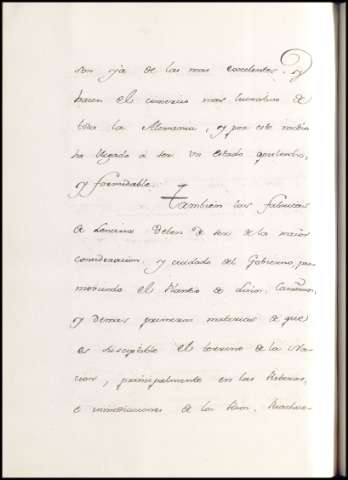 son oja de las mas excelentes, y
hacen el comercio mas lucrativo de
toda la Alemania, y por este medio
ha llegado á ser un estado opulento,
y formidable.
Tambien las fabricas
de Lenceria deben de ser de la maior
consideracion y cuidado del Gobierno, pro
moviendo el Plantio de Linos, Cañamos,
y demas primeras materias de que
es suseptible el terreno de la Na-
cion, principalmente en las Riberas,
é inmediaciones de los Rios.